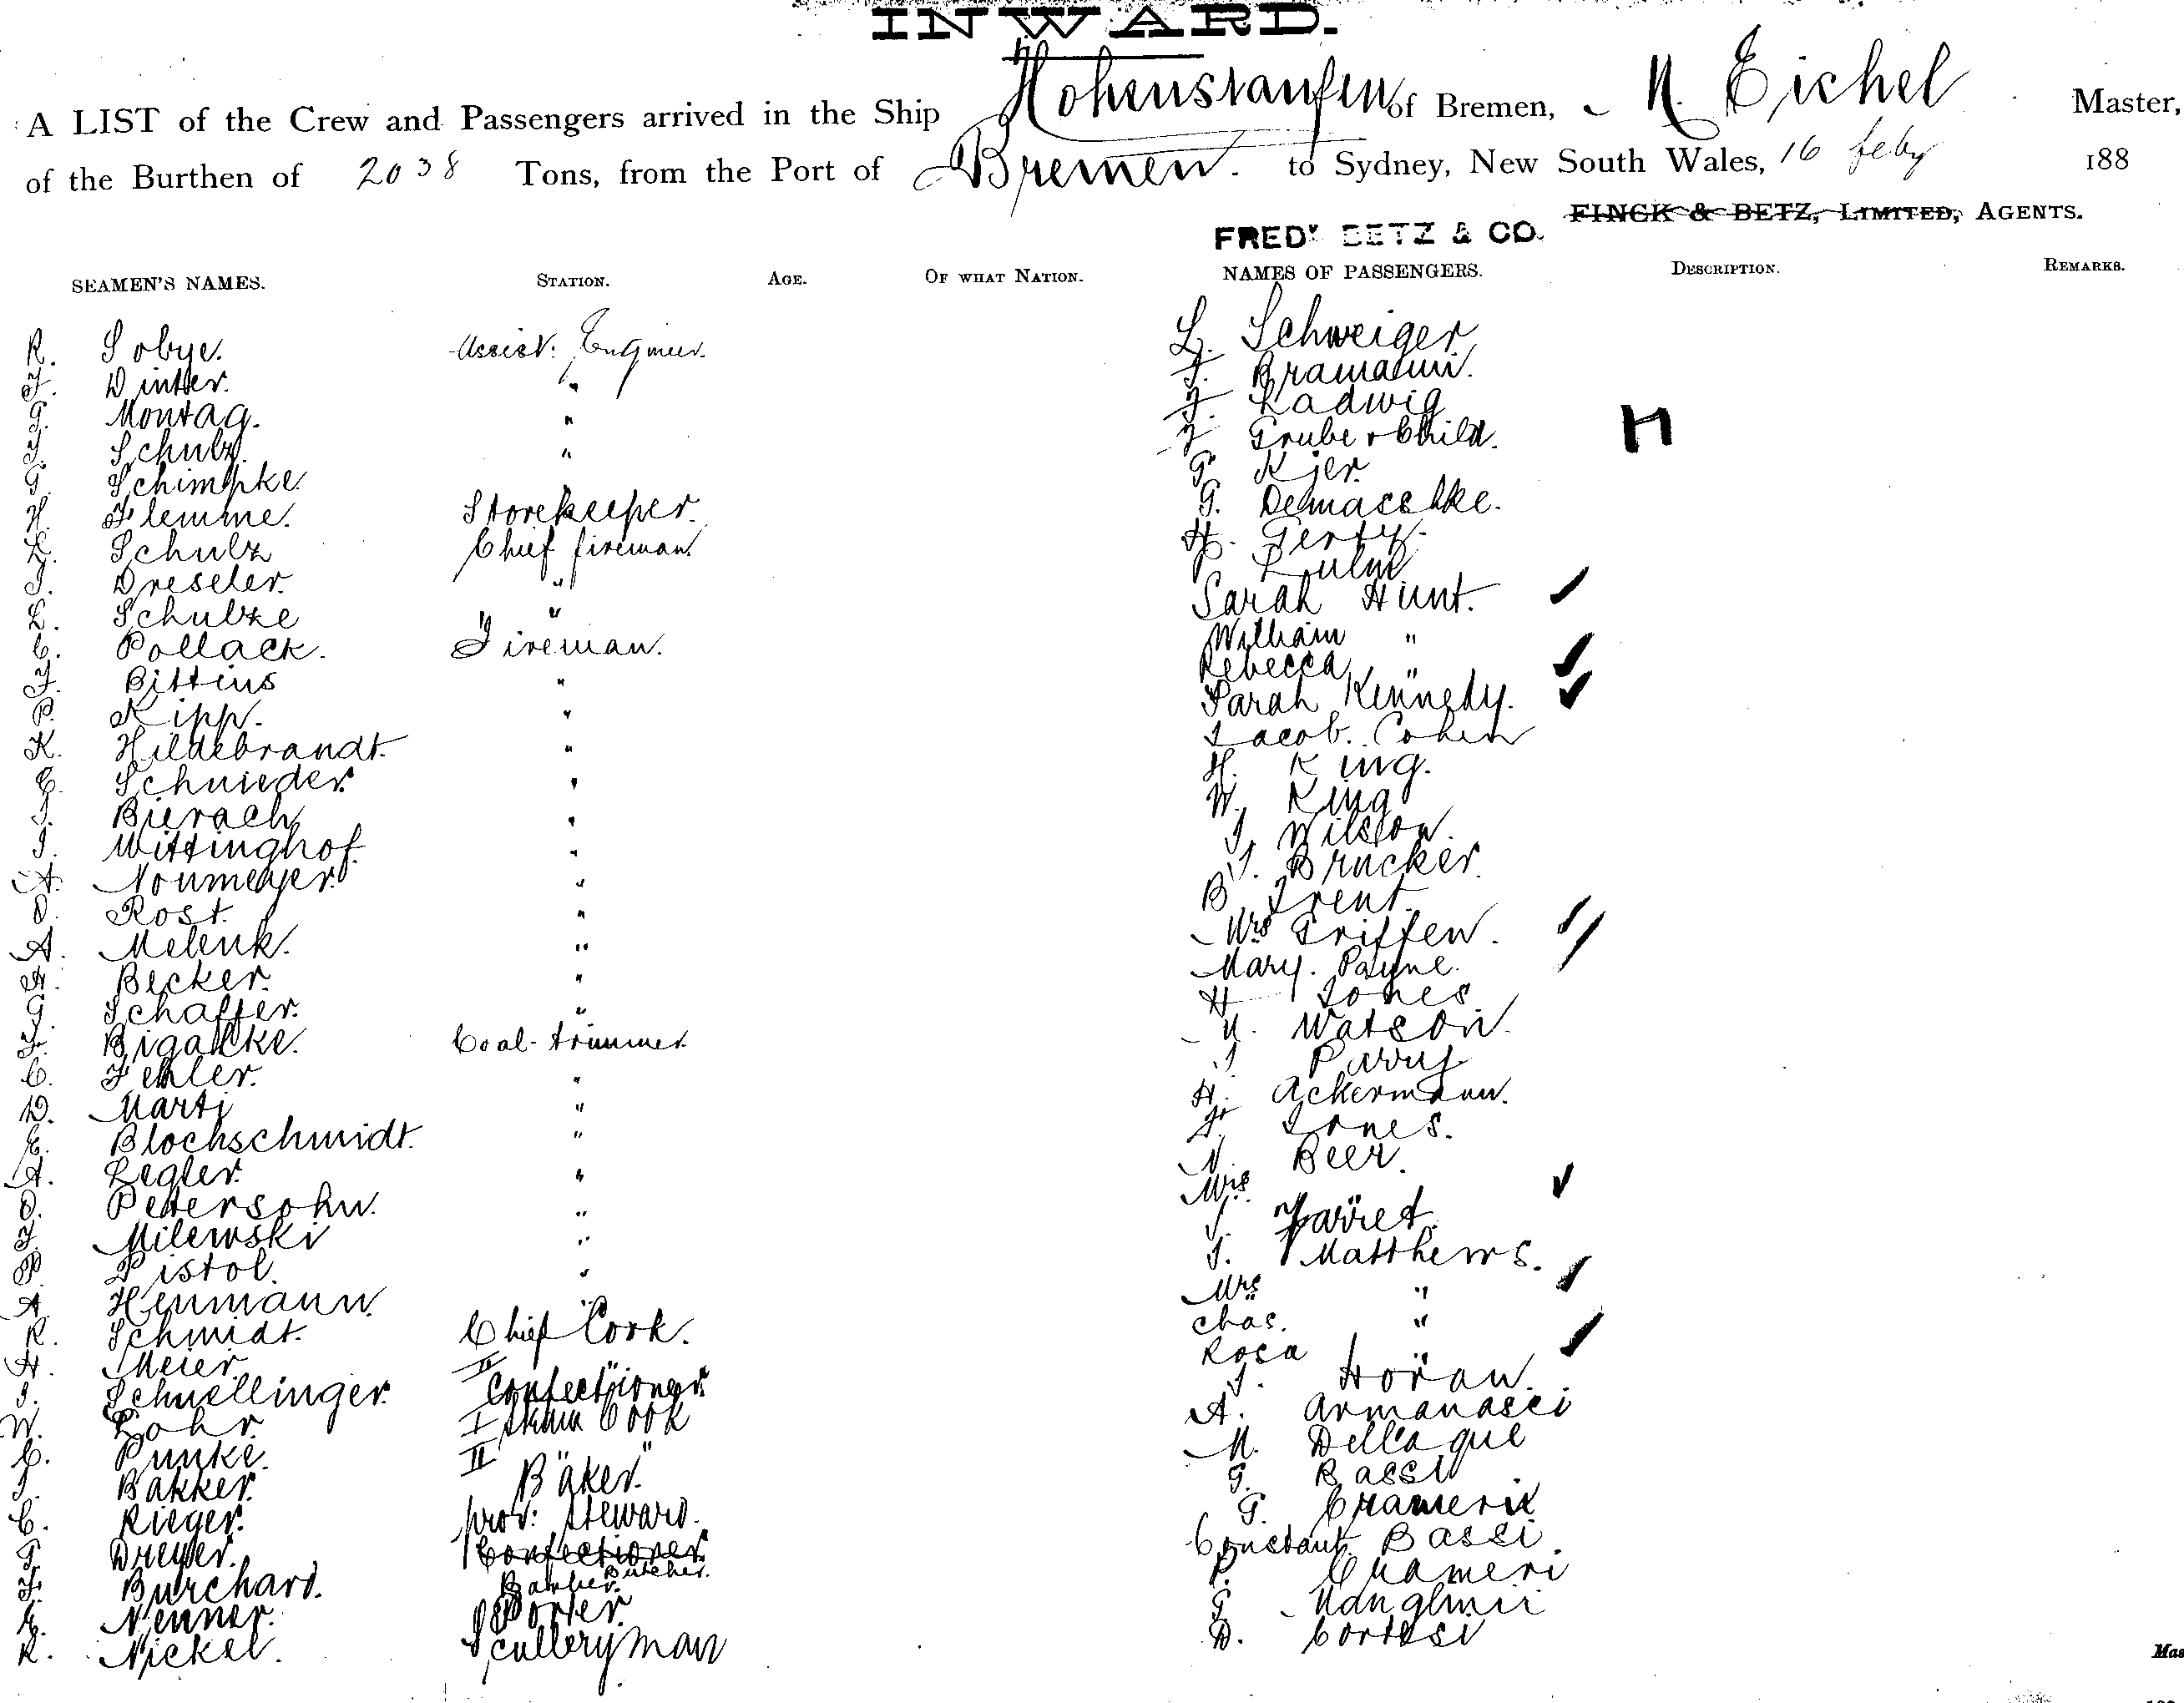 INWARD.
A LIST of the Crew and Passengers arrived in the Ship Hohenstaufen of Bremen, M. Eichel Master,
of the Burthen of 2038 Tons, from the Port of Bremen. to Sydney, New South Wales, 16 Feby 188
FINCK & BETZ, LIMITED, AGENTS.
FREDK BETZ & CO.
SEAMEN'S NAMES. STATION. AGE. OF WHAT NATION. NAMES OF PASSENGERS. DESCRIPTION. REMARKS.
R. Sobye. Assist: Engineer. L. Schweiger
F. Winter. " F. Bramann.
G. Montag. " F. Ladwig
J. Schulz. " F. Gruber & Child. H
G. Schimpke. G. Kjer.
H. Flemme. Storekeeper. G. Demaschke.
L. Schulz Chief fireman. H. Gerty.
J. Dreseler. "
L. Schulze " Sarah Hunt.
C. Pollack. Fireman. William "
F. Bittins " Rebecca "
P. Kipp. " Sarah Kennedy.
K. Hildebrandt. " Jacob. Cohen
C. Schnieder. " H. King.
J. Bierach " W. King
J. Wittinghof. " J. Wilson.
A. Noumeyer. " J. Brucker.
O. Rost. " B. Trent.
A. Melenk. " Mrs Griffen.
H. Becker. " Mary. Payne.
G. Schaffer. " H Jones
F. Bigalke. Coal-trimmer. Watson.
C. Fehler. " J Parry
D. Marti " H. Ackermann.
E. Blochschmidt. " F. Jones.
A. Legler. " N. Beer.
O. Petersohn. " Mrs
F. Milewski " J. Jarret.
P. Pistol. " J. Matthews.
A. Henmann. " Mrs "
R. Schmidt. Chief Cook. Chas. "
H. Meier. II " Rosa "
J. Schnellinger. Confectioner. J. Horan.
W. Lohr. I steam Cook A. Armanasci
C. Punke. II " " M. Dellaque
J. Bakker. Bäker. G. Bassi
C. Rieger. prov: Steward. G. Crameri
G. Dreyer. Confectioner Butcher. Constant. Bassi.
F. Burchard. Barber. P. Crameri
E. Nenner. Porter. G.
R. Nickel. Sculleryman D. Cortesi
Mas